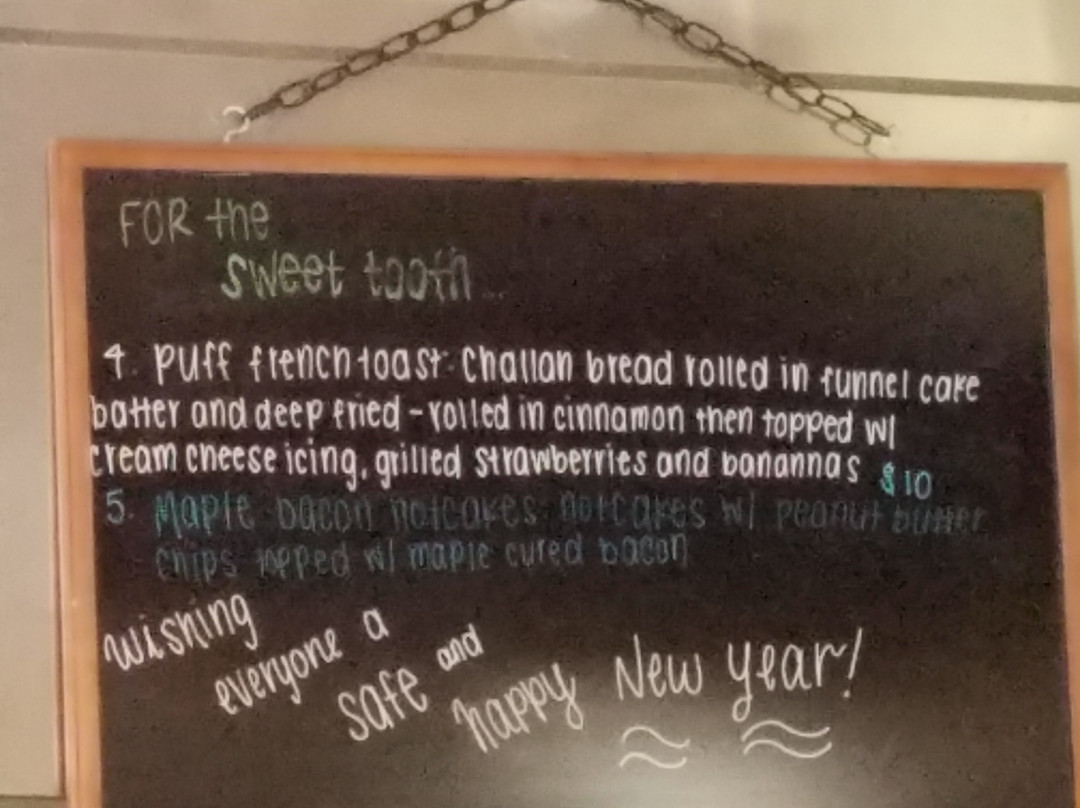 FOR the
sweet tooth...
4. Puff french toast- Challah bread rolled in funnel cake
batter and deep fried - rolled in cinnamon then topped w/
cream cheese icing, grilled strawberries and banannas $10
5. Maple bacon hotcakes- hotcakes w/ peanut butter
chips topped w/ maple cured bacon
wishing
everyone a
safe and
happy New Year!